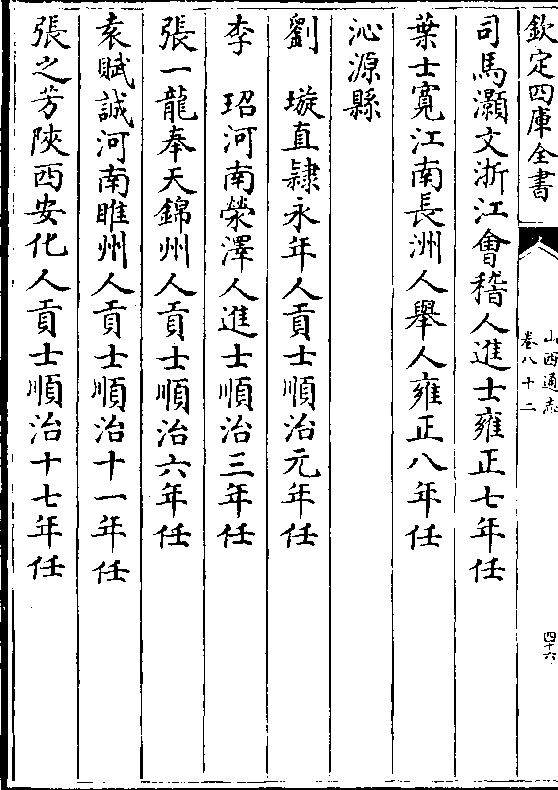 欽定四庫全書
山西通志
卷八十二
四十六
司馬灝文浙江會稽人進士雍正七年任
葉士寬江南長洲人舉人雍正八年任
沁源縣
劉　璇直隷永年人貢士順治元年任
李　玿河南滎澤人進士順治三年任
張一龍奉天錦州人貢士順治六年任
袁賦誠河南睢州人貢士順治十一年任
張之芳陜西安化人貢士順治十七年任